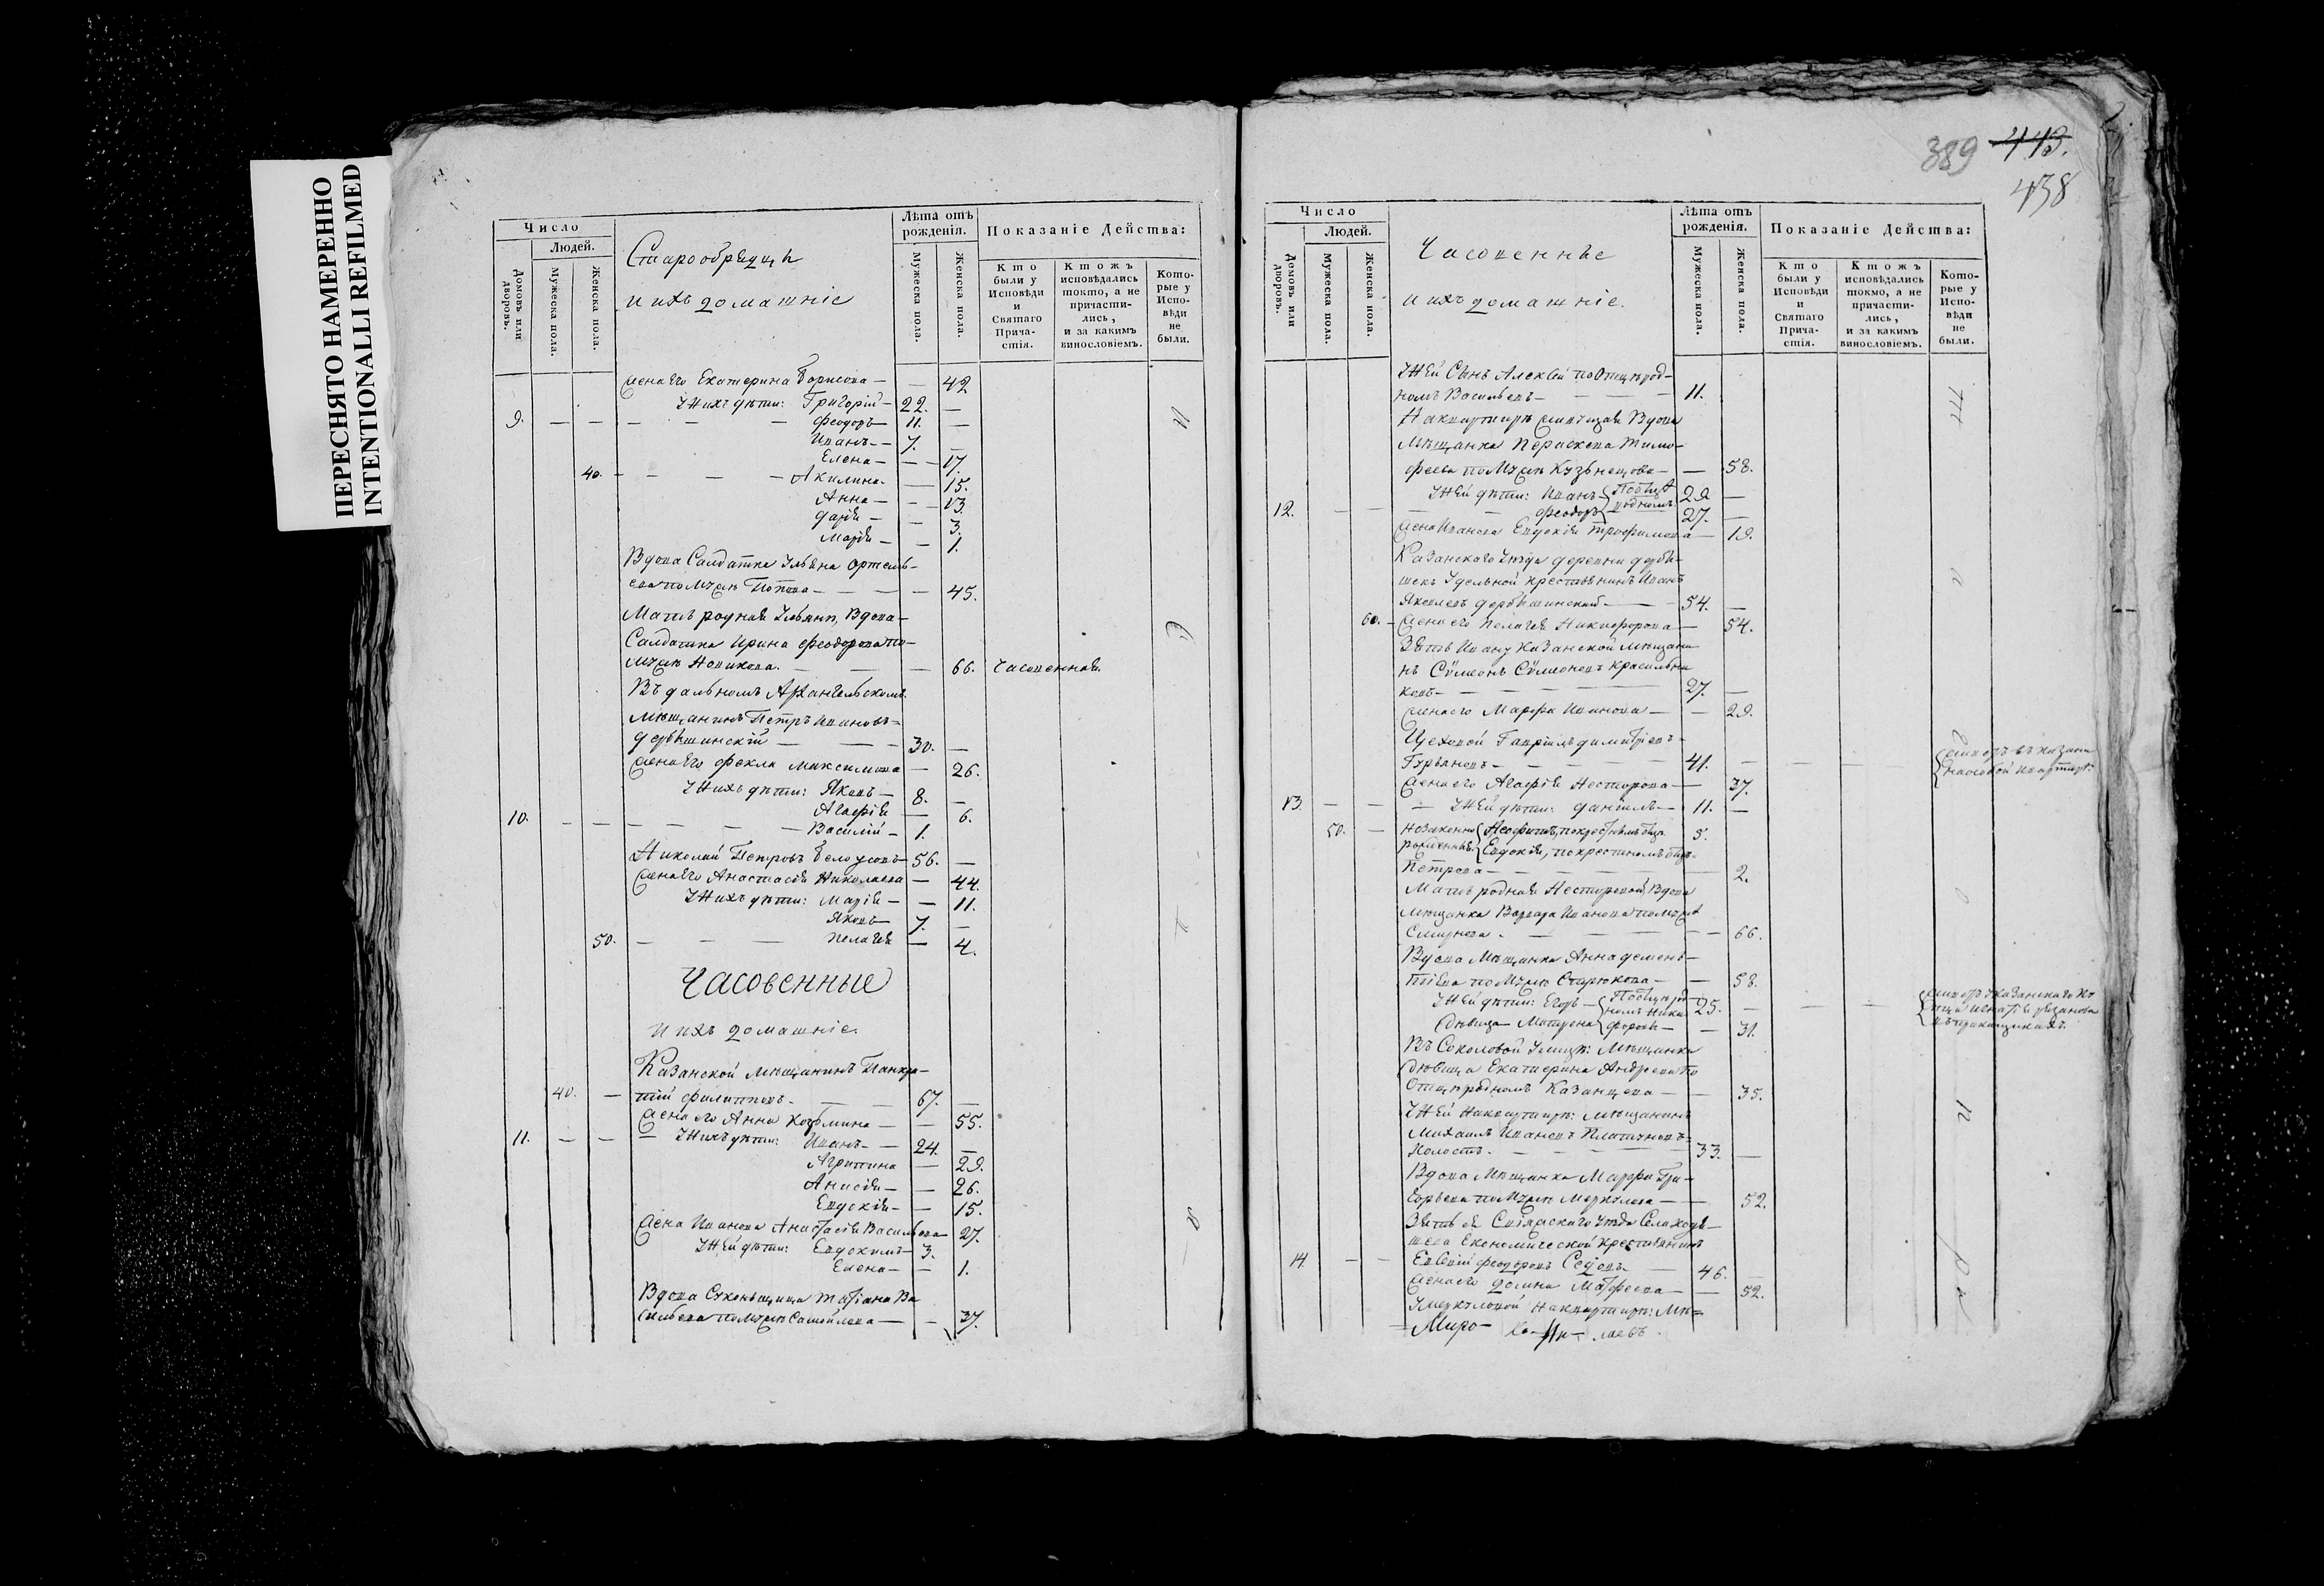 ПЕРЕСНЯТО НАМЕРЕННО
INTENTIONALLI REFILMED
Число
Людей.
Домовъ или дворовъ.
Мужеска пола.
Женска пола.
Старообрядцы
и ихъ домашнiе
Лѣта отъ рожденiя.
Мужеска пола.
Женска пола.
Показанiе Дѣйства:
Кто были у Исповѣди и Святаго Причастiя.
Ктожъ исповѣдались токмо, а не причастились, и за какимъ винословiемъ.
Которые у Исповѣди не были.
Жена его Екатерина Борисова — — 42
У нихъ дѣти: Григорiй — 22. —
9. — — — — — Феодоръ — 11. —
Иванъ — 7. —
Елена — — 17.
40. — — — — Акилина — 15.
Анна — — 13.
Дарiя — — 3.
Марiя — — 1.
Вдова Салдатка Ульяна Артемь-
ева по мужѣ Попова — — — 45.
Мать родная Ульяны, Вдова
Салдатка Ирина Феодорова по
мужѣ Новикова. — — — 66. Часовенная.
Въ дальномъ Архангельскомъ
мѣщанинъ Петръ Ивановъ
Дербышинскiй — — 30. —
Жена его Фекла Максимова — 26.
У нихъ дѣти: Яковъ — 8. —
Агафiя — 6.
10. — — — — — Василiй — 1.
Николай Петровъ Белоусовъ — 56. —
Жена его Анастасiя Николаева — 44.
У нихъ дѣти: Марiя — — 11.
Яковъ — 7. —
50. — — — Пелагея — 4.
Часовенные
и ихъ домашнiе.
Казанской мѣщанинъ Панкра-
40. — тiй Филипповъ. — — 67. —
Жена его Анна Козьмина — — 55.
11. — — — У нихъ дѣти: Иванъ — 24. —
Агрипина — 29.
Анисiя — — 26.
Евдокiя — — 15.
Жена Иванова Анастасiя Васильева 27.
У ней дѣти: Евдокимъ — 3.
Елена — — 1.
Вдова Суконьщица Татiана Ва
сильева по мужѣ Самойлова — — 37.
389 443.
438
Число
Людей.
Домовъ или дворовъ.
Мужеска пола.
Женска пола.
Часовенные
и ихъ домашнiе.
Лѣта отъ рожденiя.
Мужеска пола.
Женска пола.
Показанiе Дѣйства:
Кто были у Исповѣди и Святаго Причастiя.
Ктожъ исповѣдались токмо, а не причастились, и за какимъ винословiемъ.
Которые у Исповѣди не были.
У ней Сынъ Алексѣй по Отцѣ род-
номъ Васильевъ — — — 11.
На квартирѣ жительствуетъ Вдова
Мѣщанка Параскева Тимо-
феева по мужѣ Кузьнецова — — 58.
У ней дѣти: Иванъ 29 —
12. — — — Феодоръ 27. —
Жена Иванова Евдокiя Трофимова — 19.
Казанскаго Уѣзда деревни Дербы-
шекъ Удельной крестьянинъ Иванъ
Яковлевъ Дербышинский — 54. —
60. — Жена его Пелагея Никифорова — 54.
Зять Ивану Казанской мѣщани
нъ Сѵмеонъ Сѵмеоновъ Красильни
ковъ — — — — 27. —
Жена его Марфа Иванова — — 29.
Цеховой Гаврiилъ Димитрiевъ
Гурьяновъ — — — — 41. — — —
Жена его Агафiя Несторова — 37.
13. — — — У ней дѣти: Данiилъ — 11. —
50. — 5.
Евдокiя, по крестномъ отцѣ
Петрова — — — — 2.
Мать родная Несторовой, Вдова
мѣщанка Варвара Иванова по мужѣ
Смирнова. — — — — 66.
Вдова Мѣщанка Анна Демень-
тiева по мужѣ Старюкова — — 58.
У ней дѣти: Егоръ — 25. — — —
Дѣвица Матрена — 31.
Въ Соколовой Улицѣ: Мѣщанка
дѣвица Екатерина Андреева по
Отцѣ родномъ Казанцева — — 35.
У ней на квартирѣ: мѣщанинъ
Михаилъ Ивановъ Платичновъ
Холостъ. — — — — 33. —
Вдова Мѣщанка Марфа Гри-
горьева по мужѣ Меркулова — — 52.
Зять ея Свiяжскаго Уѣзда Села Ходя-
шева Економической крестьянинъ
14. — — Евсѣiй Феодоровъ Седовъ — 46. —
Жена его Домна Матфеева — — 52.
У Меркуловой на квартирѣ: Мѣ-